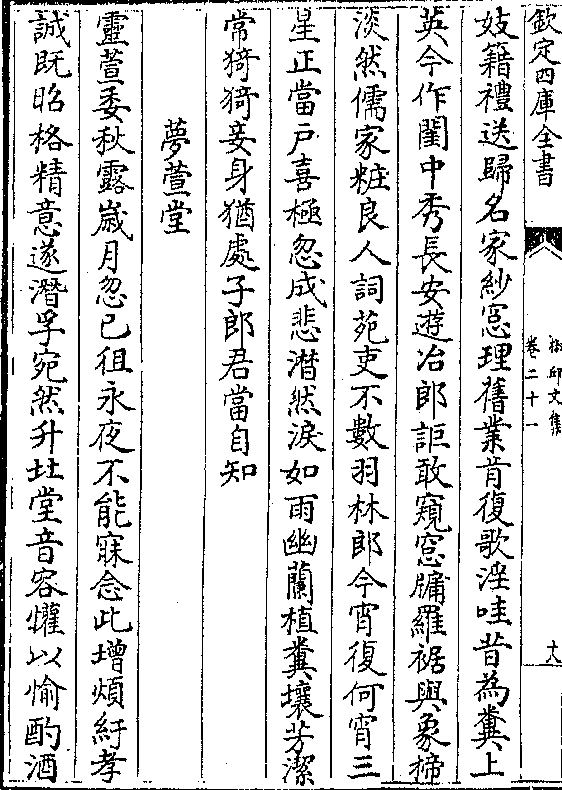 欽定四庫全書
柘邱文集
卷二十一
十八
妓籍禮送歸名家紗窓理舊業肯復歌淫哇昔為糞上
英今作閨中秀長安遊冶郎詎敢窺窓牖羅裾與象楴
淡然儒家粧良人詞苑吏不數羽林郎今宵復何宵三
星正當戸喜極忽成悲潸然淚如雨幽蘭植糞壤芳潔
常猗猗妾身猶處子郎君當自知
夢萱堂
靈萱委秋露嵗月忽已徂永夜不能寐念此增煩紆孝
誠既昭格精意遂潛孚宛然升北堂音容懽以愉酌酒